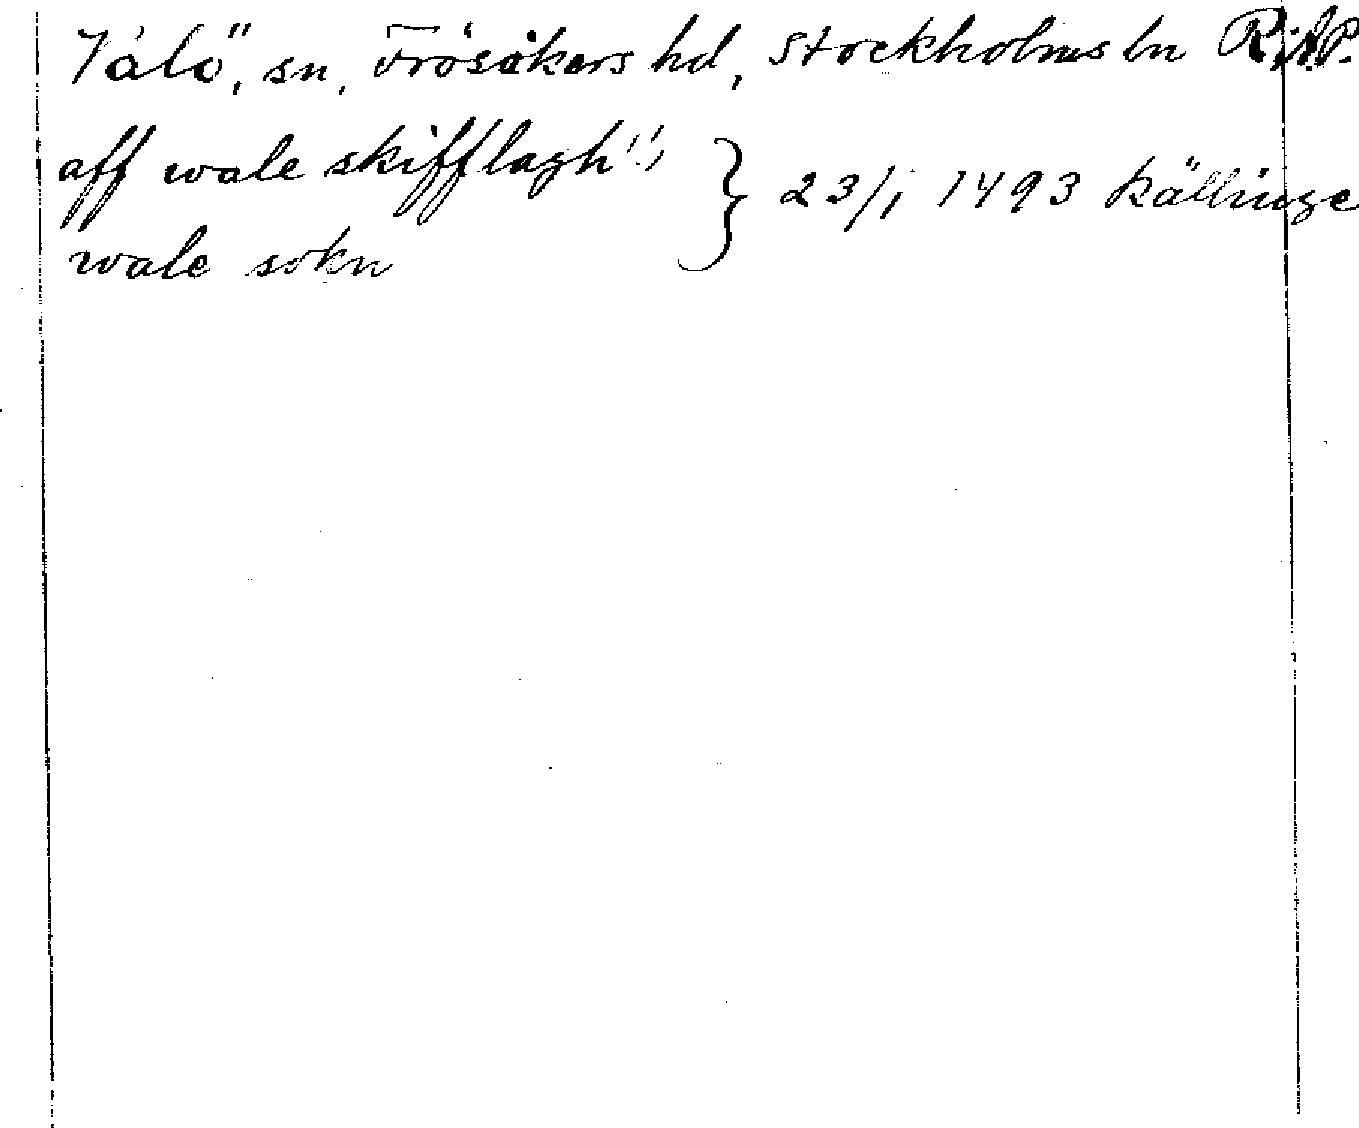 Valö, sn, Frösåkers hd, Stockholms ln R.A.P.
aff wale skifflagh (!), } 23/1 1493 Källinge
wale sokn